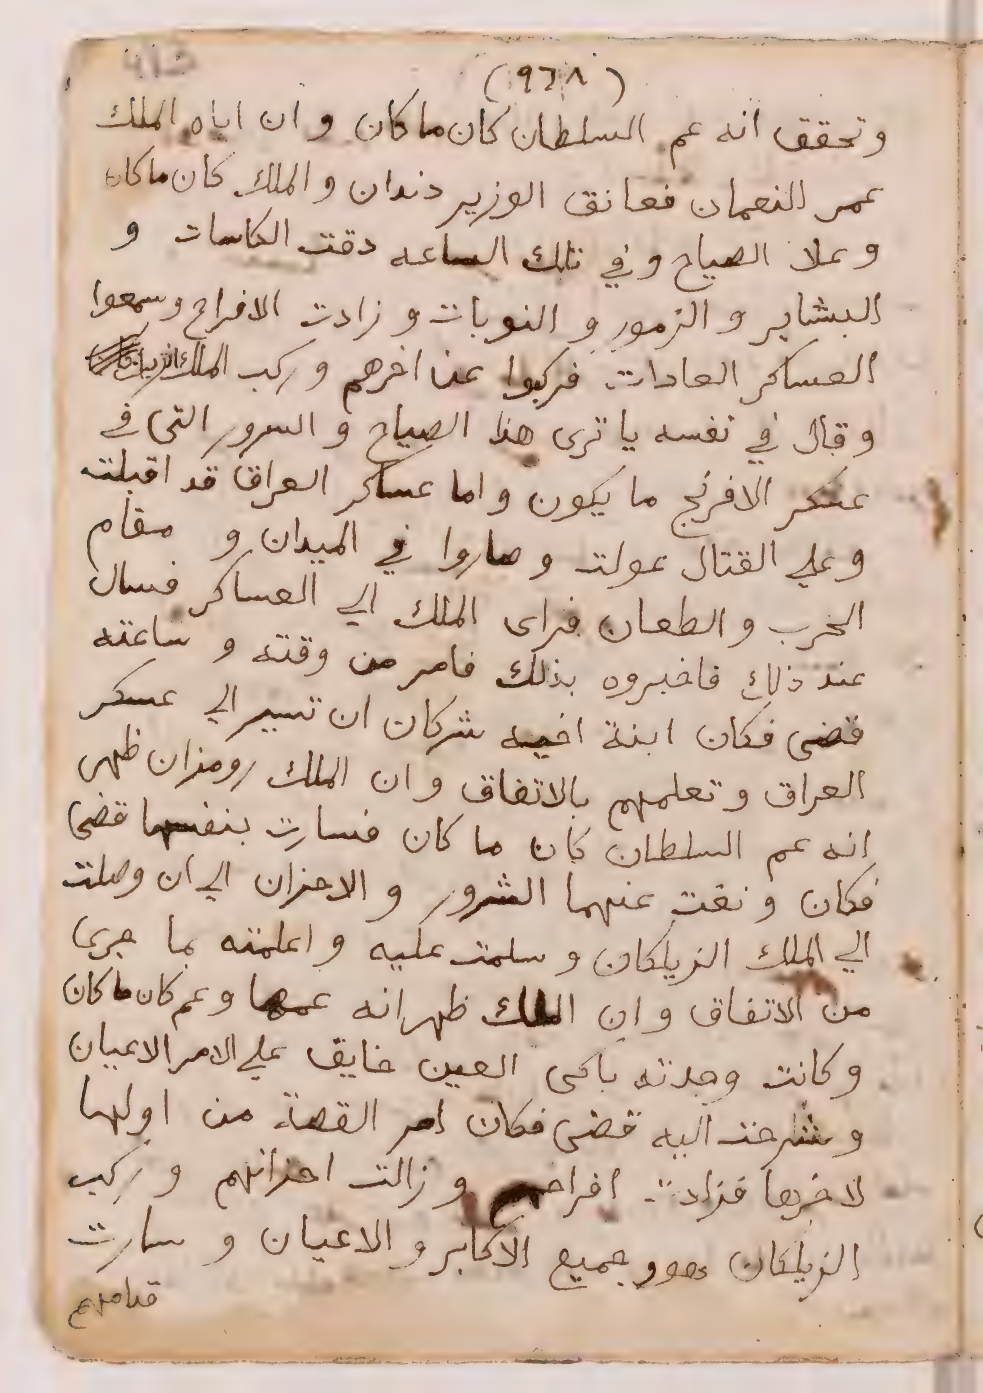 (٩٦٨)
وتحقق انه عم السلطان كان ماكان و ان اباه الملك
عمر النعمان فعانق الوزير دندان و الملك كان ماكان
و علا الصياح و في تلك الساعه دقت الكاسات و
البشاير و الزمور و النوبات و زادت الافراح و سمعوا
العساكر العادات فركبوا عن اخرهم و ركب الملك الزيلكان
و قال في نفسه يا ترى هذا الصياح و السرور التى في
عسكر الافرنج ما يكون و اما عساكر العراق قد اقبلت
و علي القتال عولت و صاروا في الميدان و مقام
الحرب و الطعان فراى الملك الي العساكر فسال
عند ذلك فاخبروه بذلك فامر من وقته و ساعته
قضى فكان ابنة اخيه شركان ان تسير الي عسكر
العراق و تعلمهم بالاتفاق و ان الملك رومزان ظهر
انه عم السلطان كان ما كان فسارت بنفسها قضى
فكان و نفت عنهما الشرور و الاحزان الي ان وصلت
الي الملك الزيلكان و سلمت عليه و اعلمته بما جرى
من الاتفاق و ان الملك ظهر انه عمها و عم كان ماكان
و كانت وجدته باكى العين خايف علي الامر الاعيان
و شرحت اليه قضى فكان امر القصة من اولها
لاخرها فزادت افراحهم و زالت احزانهم و ركب
الزيلكان هو و جميع الاكابر و الاعيان و سارت
قدامهم